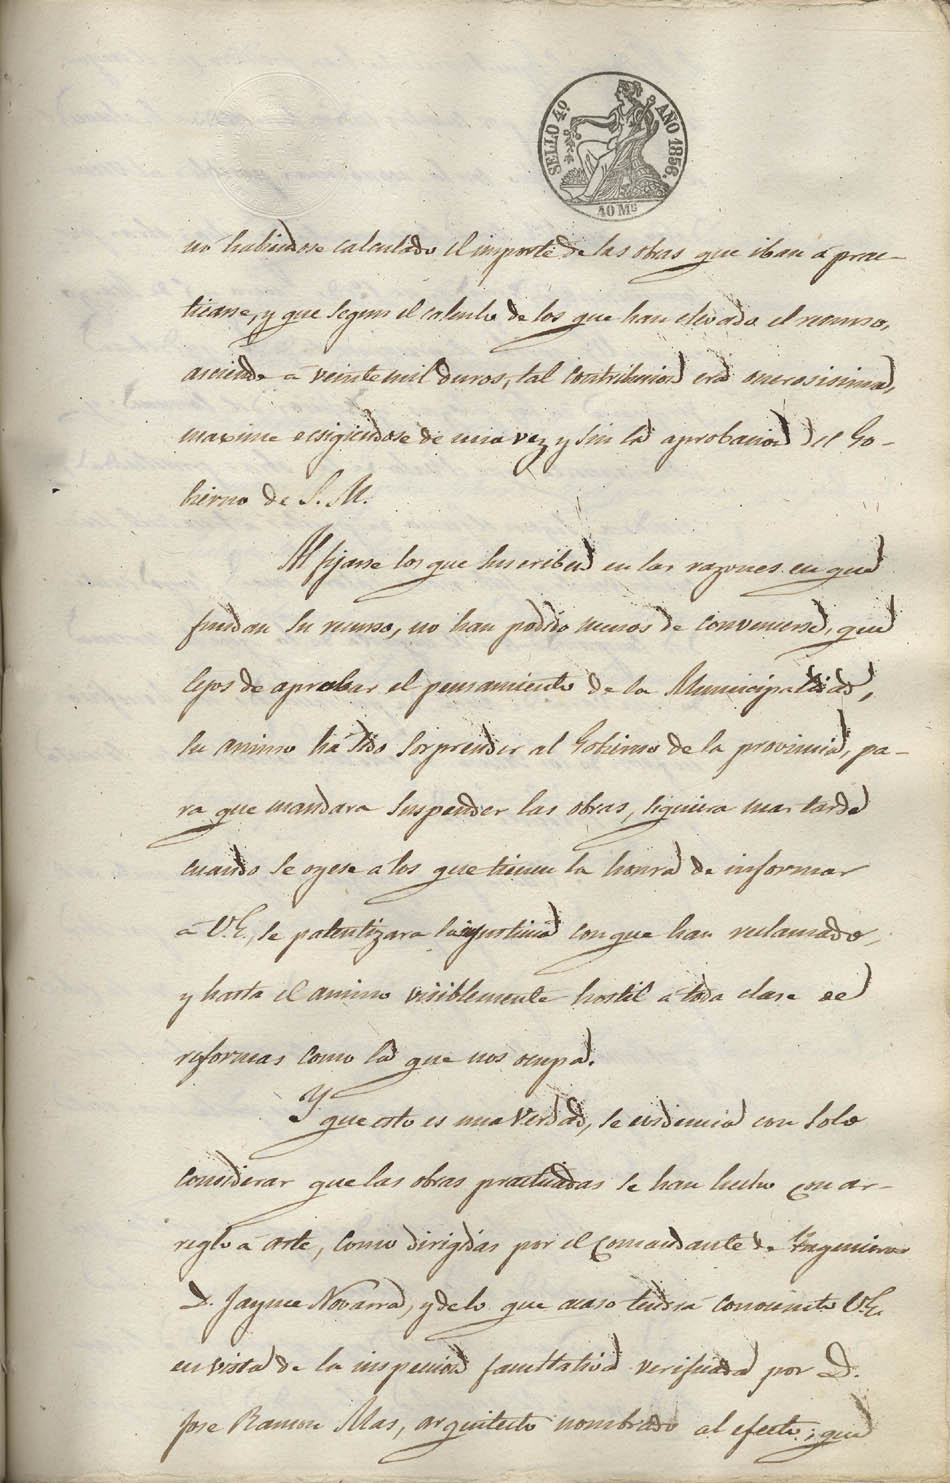 SELLO 4º. AÑO 1856.
40 Ms
no habiendose calculado el importe de las obras que iban á prac-
ticarse, y que segun el calculo de los que han elevado el recurso,
asciende á veinte mil duros, tal contribucion era onerosisima,
maxime ecsigiendose de una vez y sin la aprobacion del Go-
bierno de S. M.
Al fijarse los que suscriben en las razones en que
fundan su recurso, no han podido menos de convencerse, que
lejos de aprobar el pensamiento de la Municipalidad,
su animo há sido sorprender al Gobierno de la provincia, pa-
ra que mandara suspender las obras, siquiera mas tarde
cuando se oyese a los que tienen la honra de informar
á V.E., se patentizara la injusticia con que han reclamado,
y hasta el animo visiblemente hostil á toda clase de
reformas como la que nos ocupa.
Y que esto es una verdad, se evidencia con solo
considerar que las obras practicadas se han hecho con ar-
reglo á arte, como dirigidas por el Comandante de Yngenieros
D. Jayme Navarra, y de lo que acaso tendrá conocimto V.E.
en vista de la inspeccion facultativa verificada por D.
Jose Ramon Mas, arquitecto nombrado al efecto; que